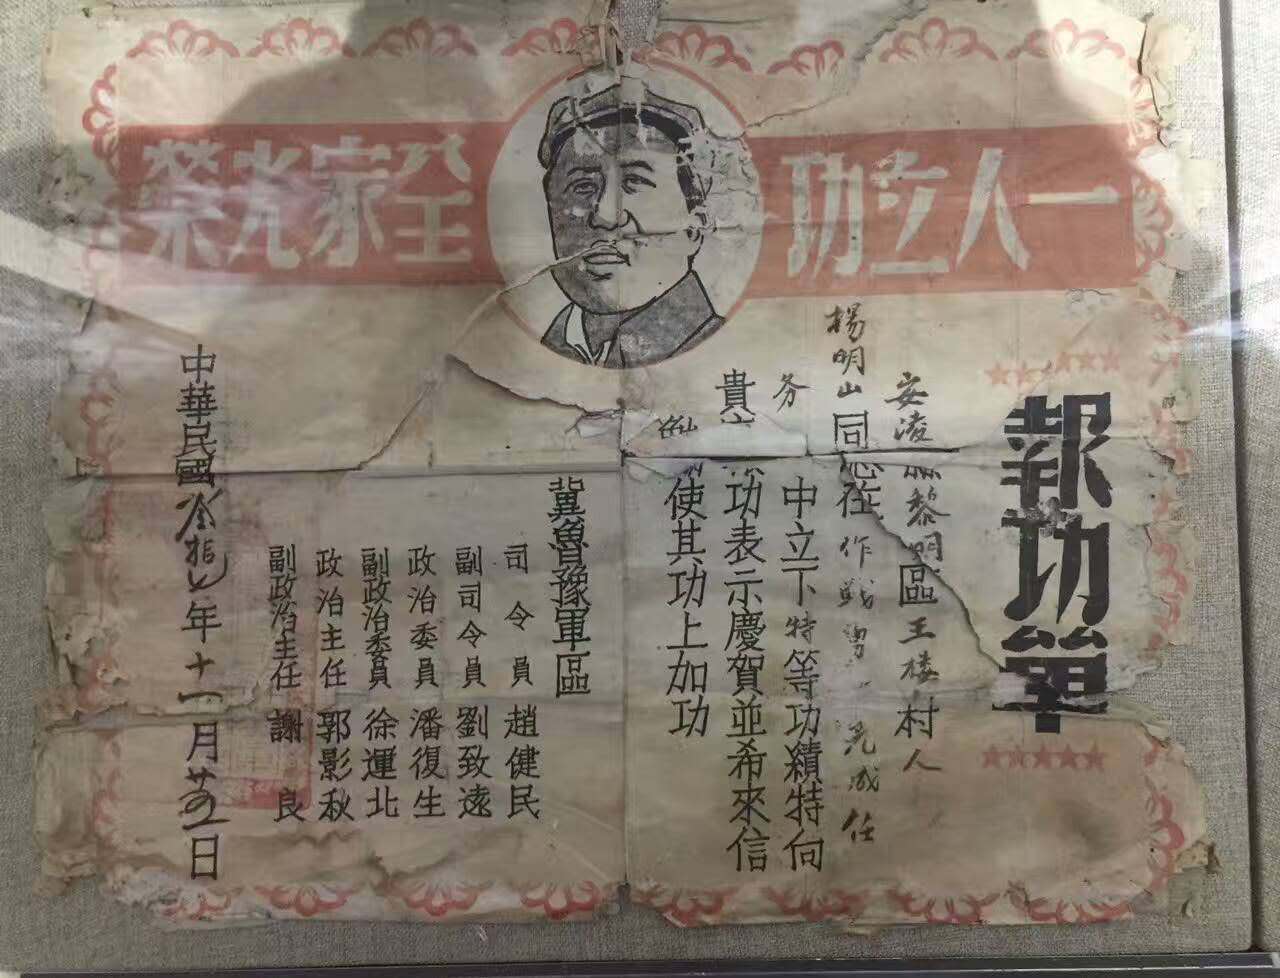 一人立功
全家光榮
報功單
安淩黎明區王楼村人
楊明山同志在作战勇完成任
务中立下特等功績特向
貴功表示慶賀並希來信
使其功上加功
冀魯豫軍區
司令員趙健民
副司令員劉致遠
政治委員潘復生
副政治委員徐運北
政治主任郭影秋
副政治主任謝良
中華民國叁拾七年十一月廿日